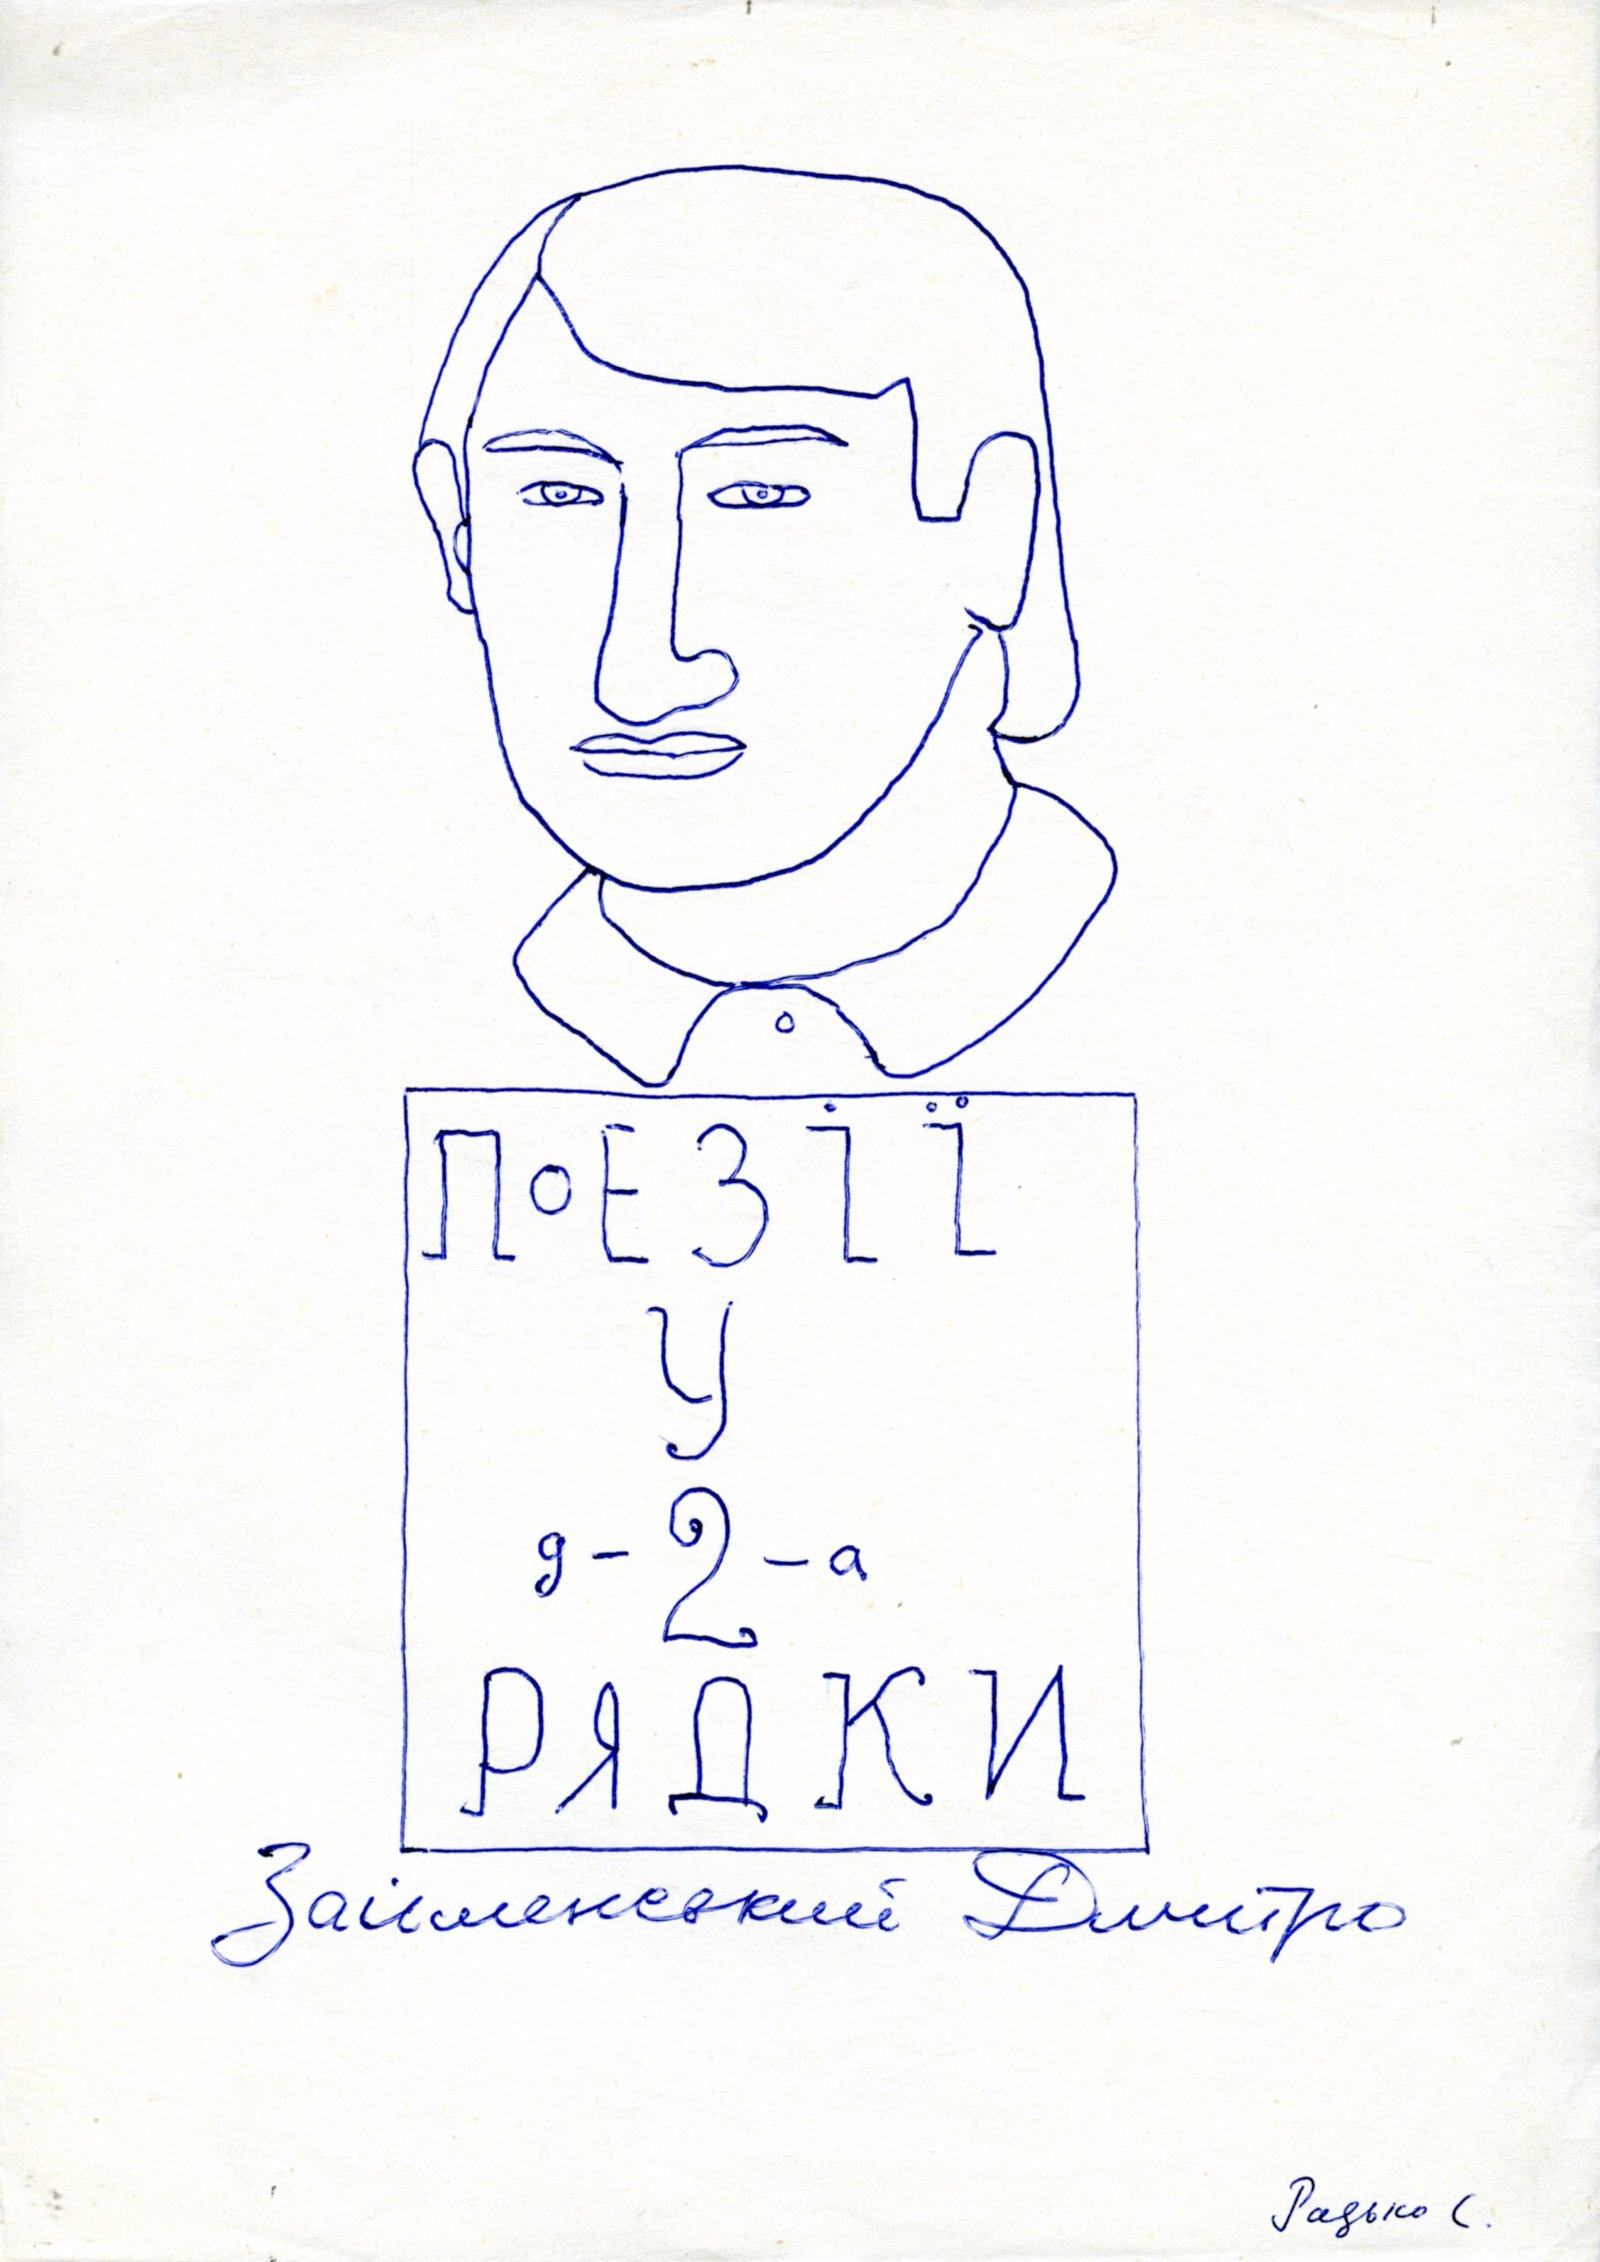 ПОЕЗІЇ
У
д-2-а
РЯДКИ
Займенський Дмитро
Радько С.